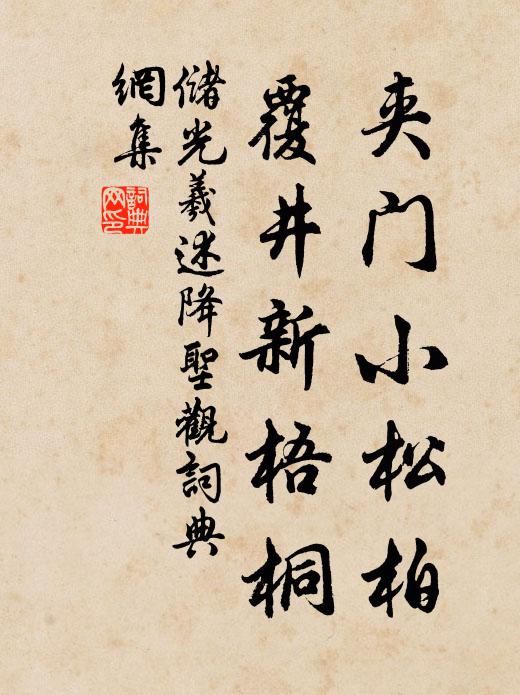 夹门小松柏
覆井新梧桐
储光羲述降聖觀詞典
網集
詞典
网印